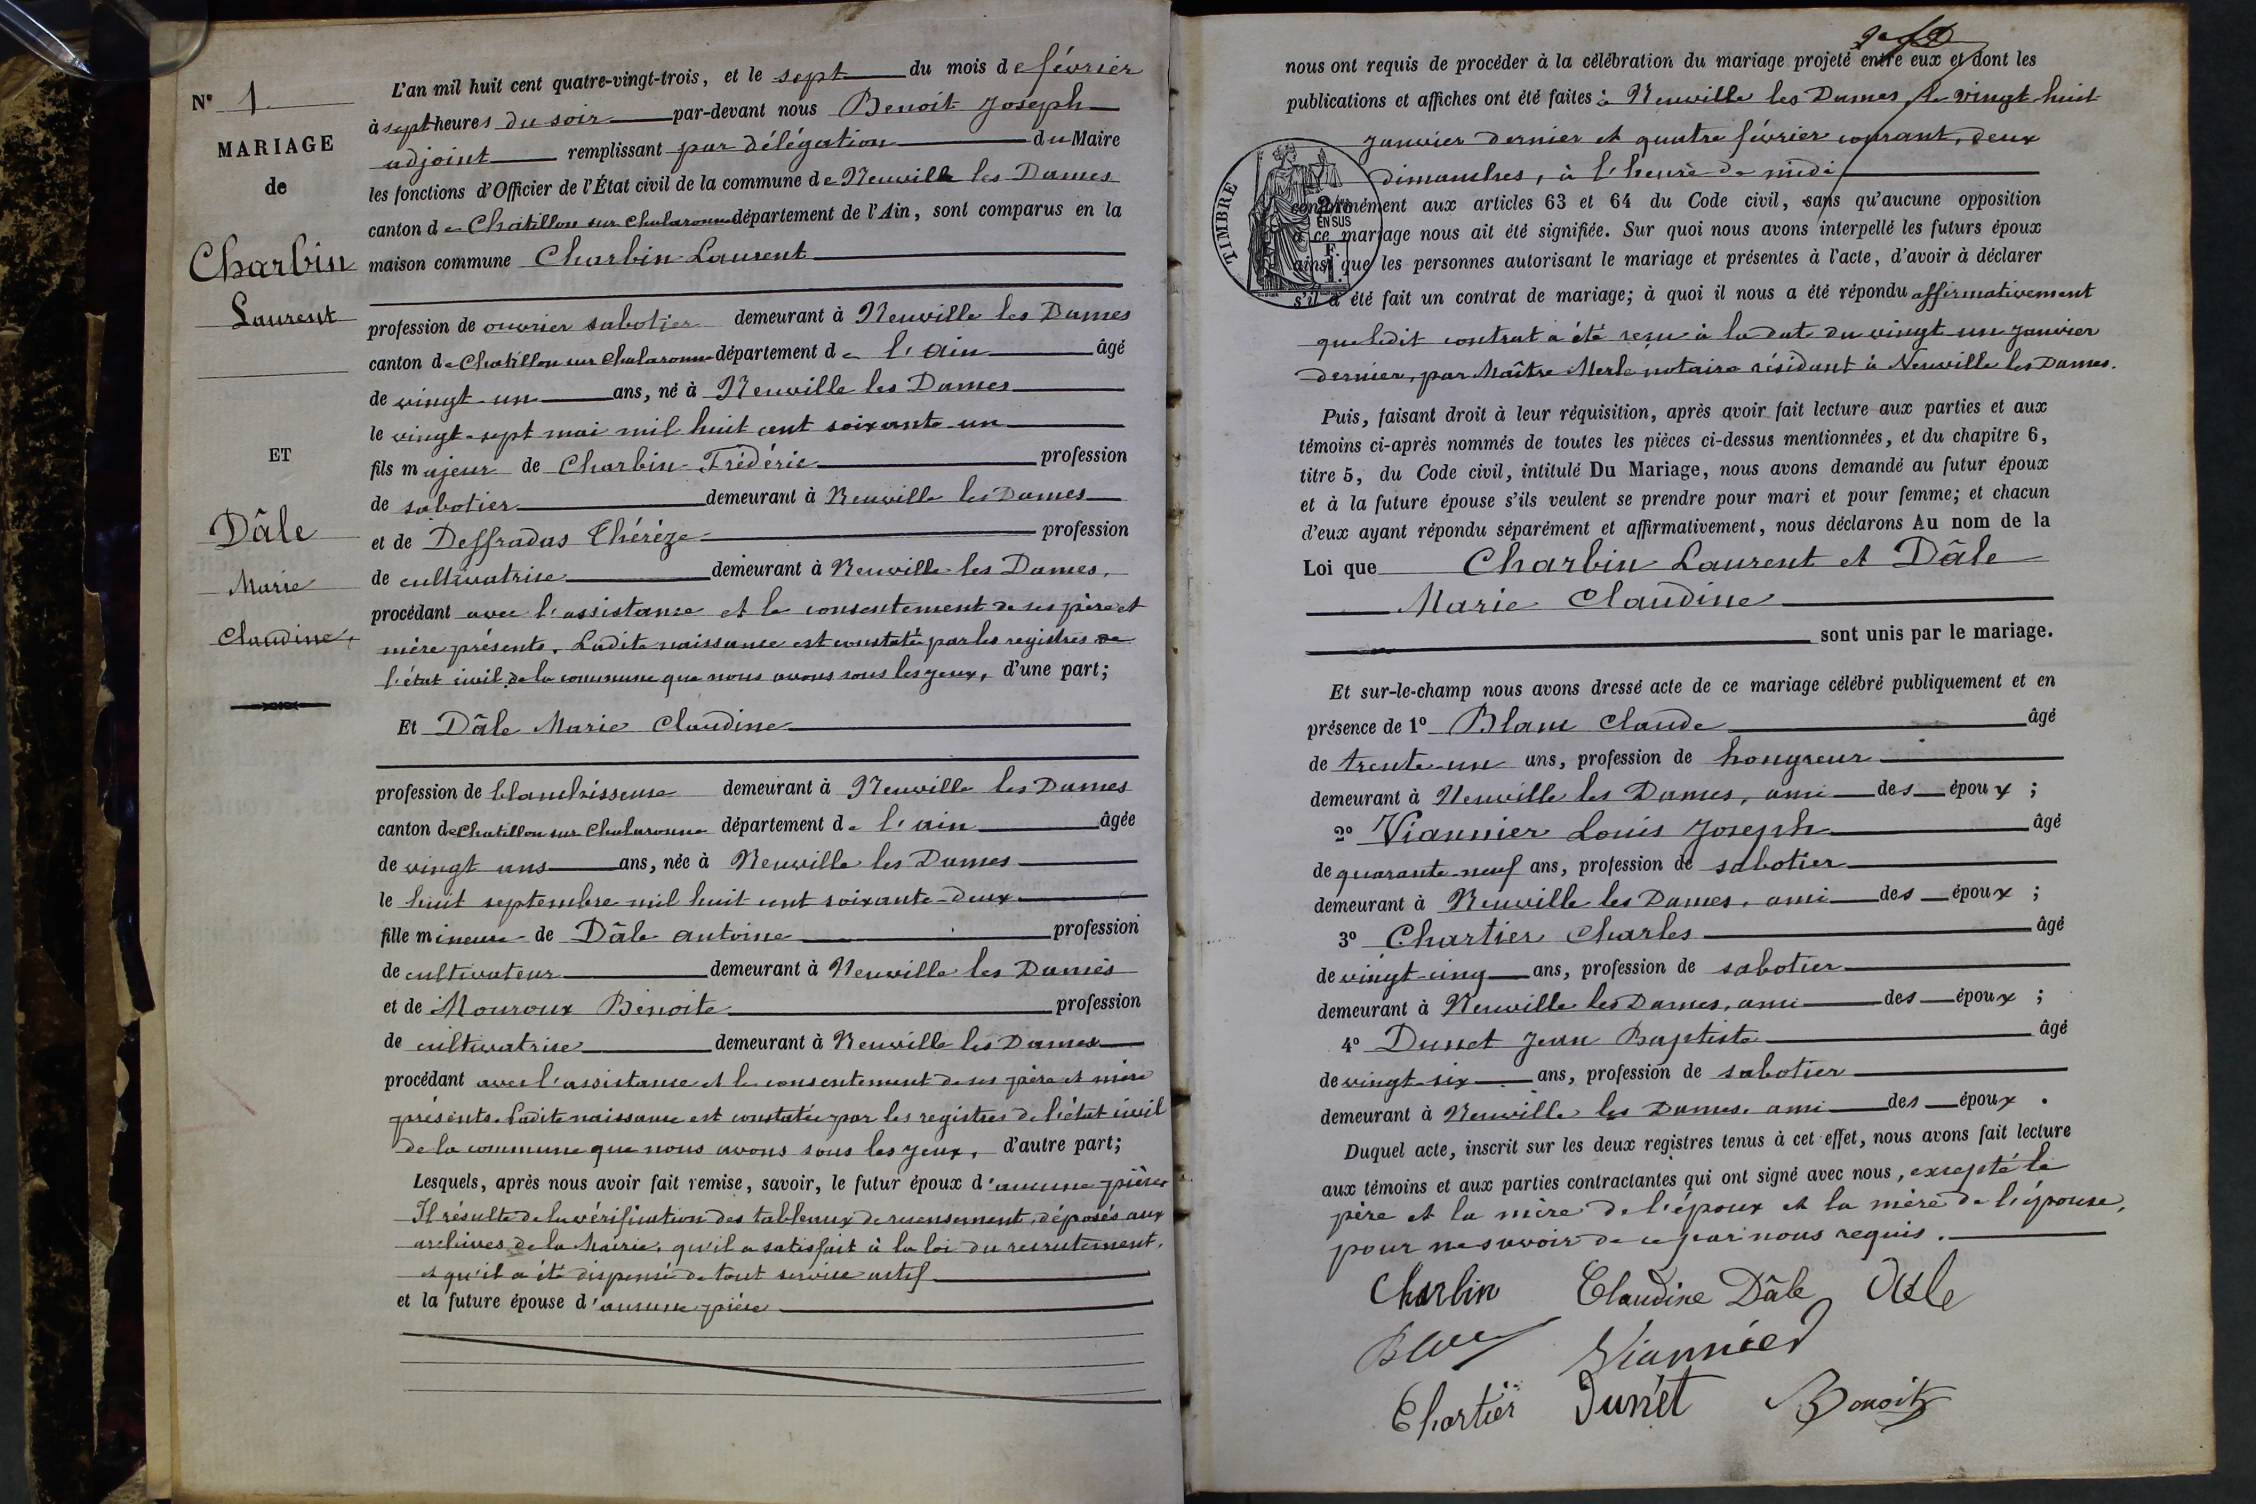 N° 1.
MARIAGE
de
Charbin
Laurent
ET
Dâle
Marie
Claudine.
L'an mil huit cent quatre-vingt-trois, et le sept du mois de février
à sept heures du soir par-devant nous Benoit Joseph
adjoint remplissant par délégation du Maire
les fonctions d'Officier de l'État civil de la commune de Neuville les Dames
canton de Chatillon sur Chalaronne département de l'Ain, sont comparus en la
maison commune Charbin Laurent
profession de ouvrier sabotier demeurant à Neuville les Dames
canton de Chatillon sur Chalaronne département de l'Ain âgé
de vingt-un ans, né à Neuville les Dames
le vingt-sept mai mil huit cent soixante-un
fils majeur de Charbin Frédéric profession
de sabotier demeurant à Neuville les Dames
et de Deffradas Thérèze profession
de cultivatrice demeurant à Neuville les Dames,
procédant avec l'assistance et le consentement de ses père et
mère présents. Ladite naissance est constatée par les registres de
l'état civil de la commune que nous avons sous les yeux, d'une part;
Et Dâle Marie Claudine
profession de blanchisseuse demeurant à Neuville les Dames
canton de Chatillon sur Chalaronne département de l'ain âgée
de vingt ans ans, née à Neuville les Dames
le huit septembre mil huit cent soixante-deux
fille mineure de Dâle Antoine profession
de cultivateur demeurant à Neuville les Dames
et de Mouroux Benoite profession
de cultivatrice demeurant à Neuville les Dames
procédant avec l'assistance et le consentement de ses père et mère
présents. Ladite naissance est constatée par les registres de l'état civil
de la commune que nous avons sous les yeux, d'autre part;
Lesquels, après nous avoir fait remise, savoir, le futur époux d'aucune pièce
Il résulte de la vérification des tableaux de recensement, déposés aux
archives de la Mairie, qu'il a satisfait à la loi du recrutement,
et qu'il a été dispensé de tout service actif
et la future épouse d'aucune pièce
nous ont requis de procéder à la célébration du mariage projeté entre eux et dont les
publications et affiches ont été faites à Neuville les Dames le vingt-huit
janvier dernier et quatre février courant, deux
dimanches, à l'heure de midi
conformément aux articles 63 et 64 du Code civil, sans qu'aucune opposition
à ce mariage nous ait été signifiée. Sur quoi nous avons interpellé les futurs époux
ainsi que les personnes autorisant le mariage et présentes à l'acte, d'avoir à déclarer
s'il a été fait un contrat de mariage; à quoi il nous a été répondu affirmativement
que ledit contrat a été reçu à la date du vingt-un janvier
dernier, par Maître Merle notaire résidant à Neuville les Dames.
TIMBRE
EN SUS
Puis, faisant droit à leur réquisition, après avoir fait lecture aux parties et aux
témoins ci-après nommés de toutes les pièces ci-dessus mentionnées, et du chapitre 6,
titre 5, du Code civil, intitulé Du Mariage, nous avons demandé au futur époux
et à la future épouse s'ils veulent se prendre pour mari et pour femme; et chacun
d'eux ayant répondu séparément et affirmativement, nous déclarons Au nom de la
Loi que Charbin Laurent et Dâle
Marie Claudine
sont unis par le mariage.
Et sur-le-champ nous avons dressé acte de ce mariage célébré publiquement et en
présence de 1° Blanc Claude âgé
de trente-un ans, profession de hongreur
demeurant à Neuville les Dames, ami des époux ;
2° Viannier Louis Joseph âgé
de quarante-neuf ans, profession de sabotier
demeurant à Neuville les Dames, ami des époux ;
3° Chartier Charles âgé
de vingt-cinq ans, profession de sabotier
demeurant à Neuville les Dames, ami des époux ;
4° Dunet Jean Baptiste âgé
de vingt-six ans, profession de sabotier
demeurant à Neuville les Dames, ami des époux .
Duquel acte, inscrit sur les deux registres tenus à cet effet, nous avons fait lecture
aux témoins et aux parties contractantes qui ont signé avec nous, excepté le
père et la mère de l'époux et la mère de l'épouse,
pour ne savoir de ce par nous requis.
Charbin Claudine Dâle Dâle
Blanc Viannier
Chartier Dunet Benoit